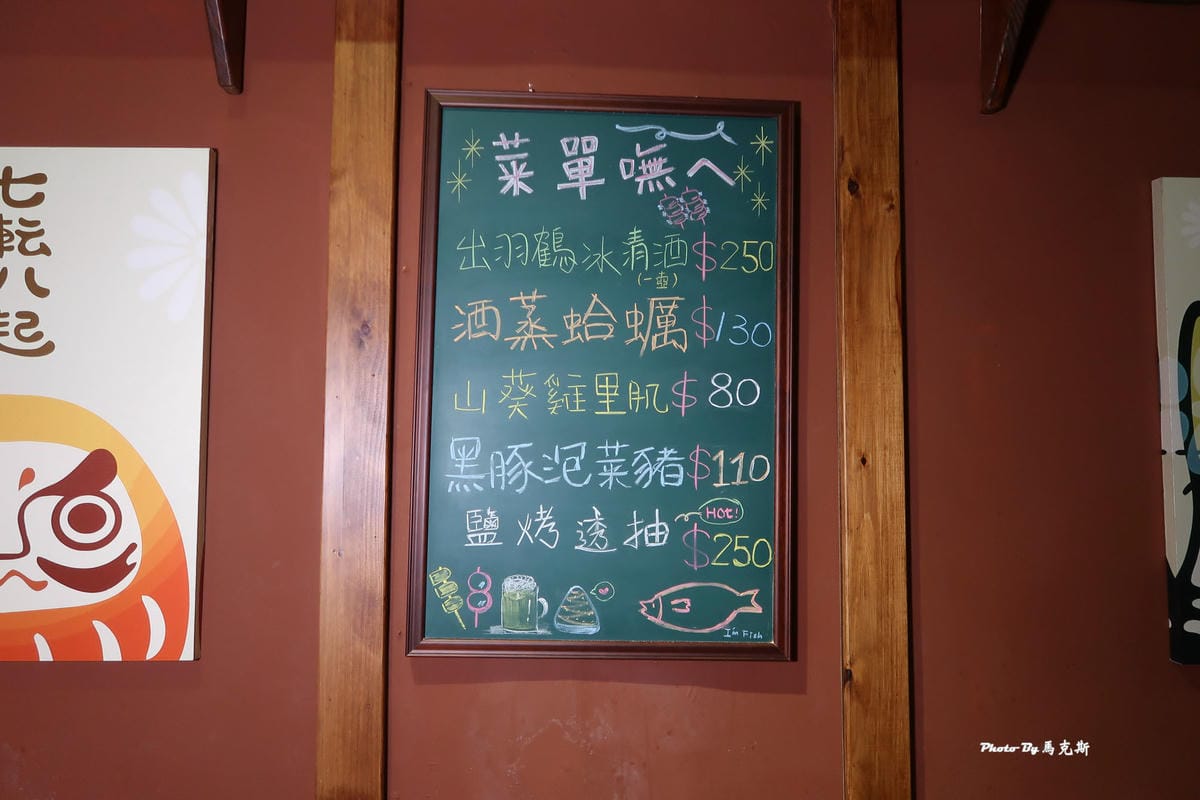 七転八起
菜單嘸ㄟ
出羽鶴冰清酒 $250
(一壺)
酒蒸蛤蠣 $130
山葵雞里肌 $80
黑豚泡菜豬 $110
鹽烤透抽 $250
HOt!
I'm Fish
Photo By 馬克斯